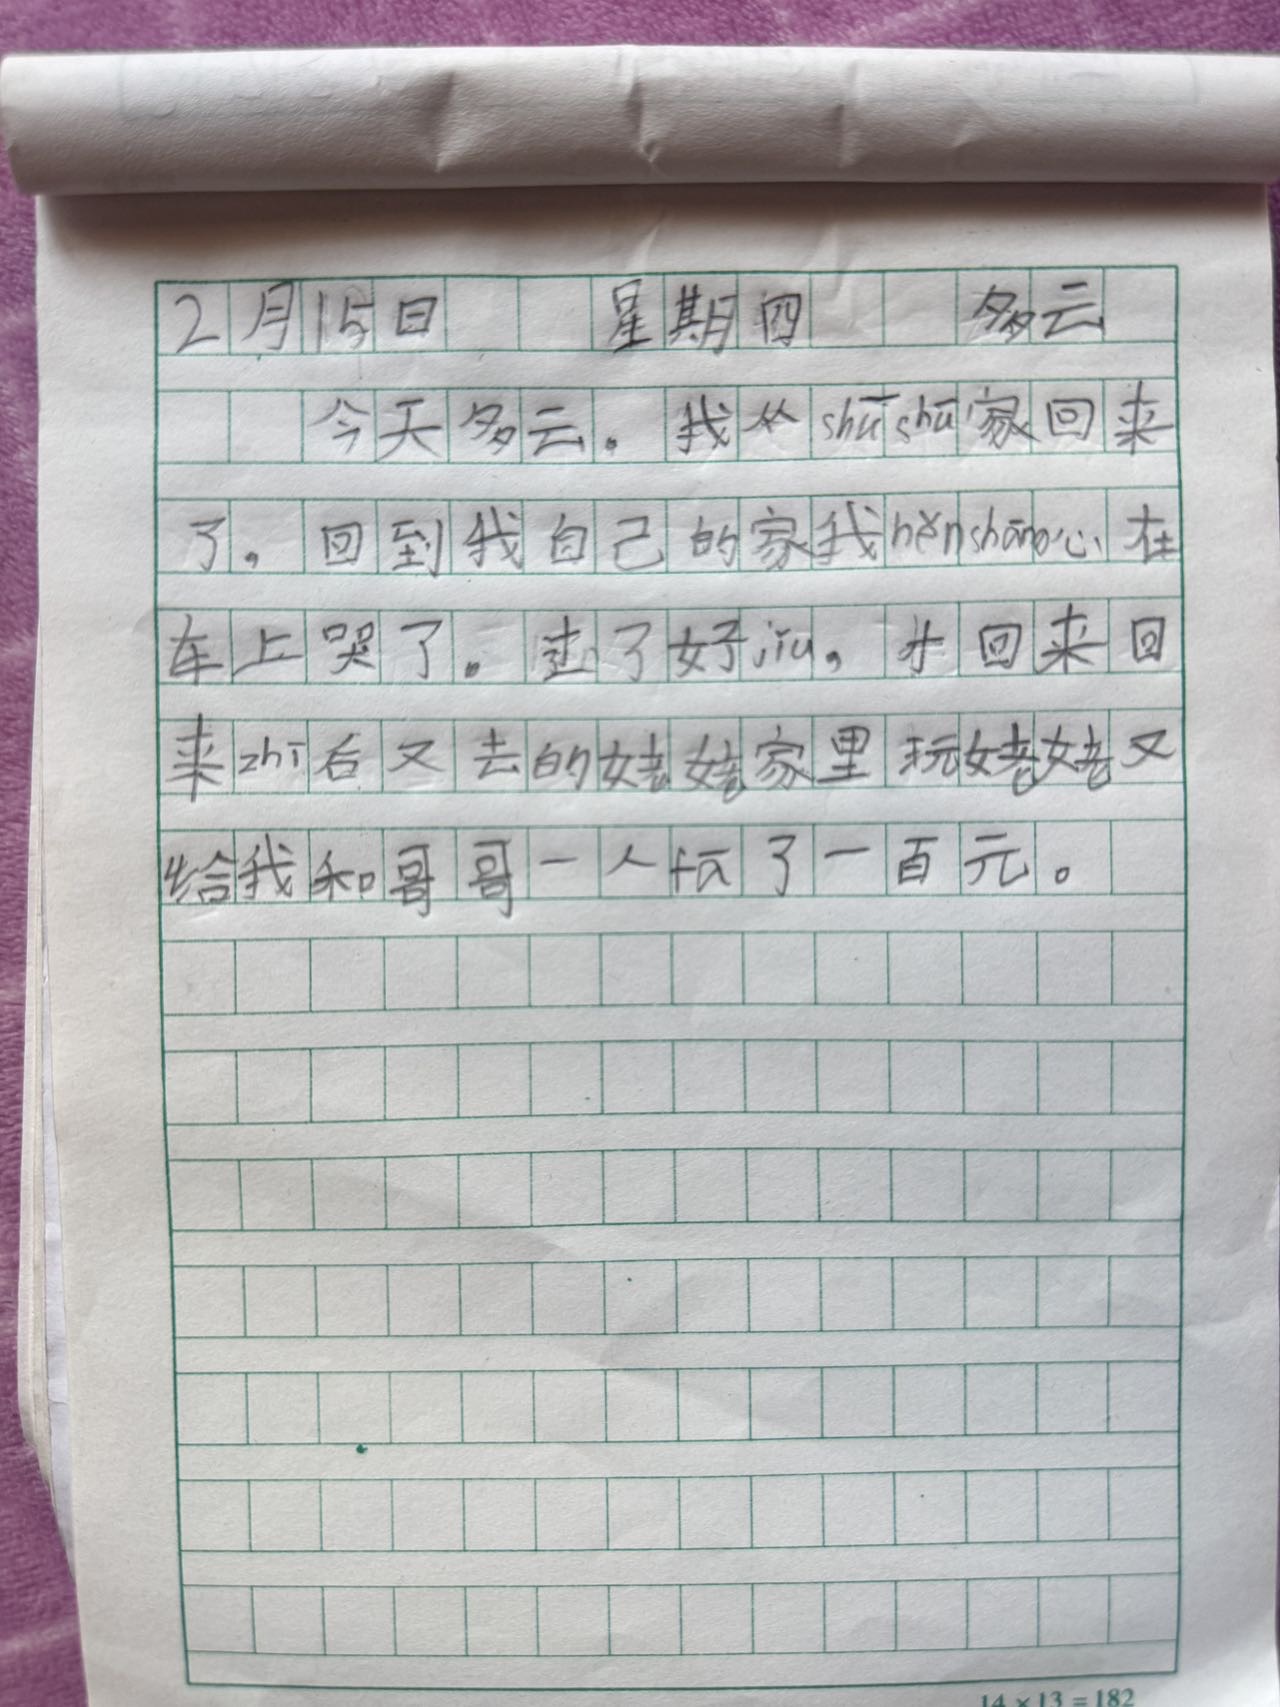 2月15日 星期四 多云
今天多云。我从shūshū家回来
了。回到我自己的家我hěnshāng心在
车上哭了。走了好jiǔ,才回来回
来zhī后又去的姥姥家里玩姥姥又
给我和哥哥一人fā了一百元。
14×13=182